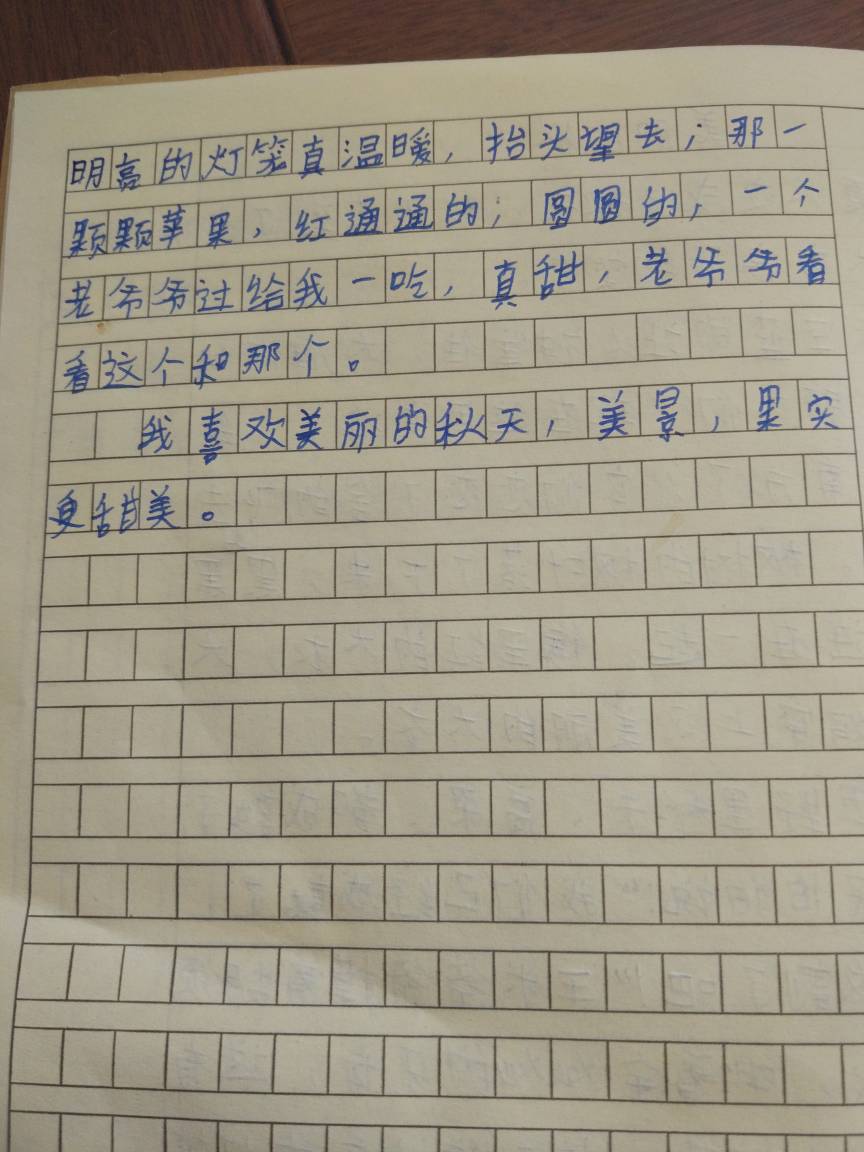 明亮的灯笼真温暖，抬头望去；那一
颗颗苹果，红通通的；圆圆的，一个
老爷爷过给我一吃，真甜，老爷爷看
看这个和那个。
我喜欢美丽的秋天，美景，果实
更甜美。